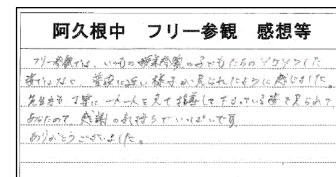 阿久根中 フリー参観 感想等
フリー参観では、いつもの授業参観の子どもたちのソワソワした
姿ではなく、普段に近い様子が見られたように感じました。
先生方も丁寧に一人一人を見て指導して下さっている姿も見られて
ありがとうございました。